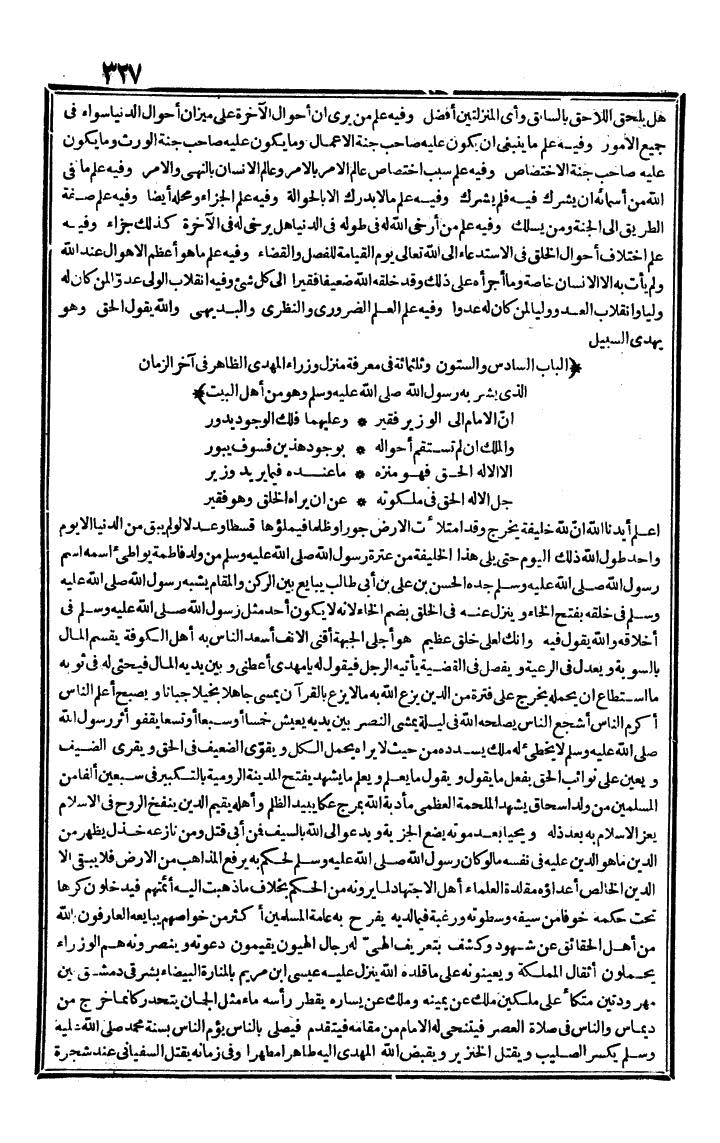 ٣٢٧
هل يلحق اللاحق بالسابق وأى المنزلتين أفضل وفيه علم من يرى ان أحوال الآخرة على ميزان أحوال الدنيا سواء فى
جميع الامور وفيه علم ما ينبغى ان يكون عليه صاحب جنة الاعمال وما يكون عليه صاحب جنة الورث وما يكون
عليه صاحب جنة الاختصاص وفيه علم سبب اختصاص عالم الامر بالامر وعالم الانسان بالنهى والامر وفيه علم ما فى
الله من أسمائه ان يشرك فيه فلم يشرك وفيه علم ما لا يدرك الا بالحوالة وفيه علم الجزاء ومحله أيضا وفيه علم صفة
الطريق الى الجنة ومن يسلك وفيه علم من أرخى الله له فى طوله فى الدنيا هل يرخى له فى الآخرة كذلك جزاء وفيه
علم اختلاف أحوال الخلق فى الاستدعاء الى الله تعالى يوم القيامة للفصل والقضاء وفيه علم ما هو أعظم الاهوال عند الله
ولم يأت به الا الانسان خاصة وما أجرأه على ذلك وقد خلقه الله ضعيفا فقيرا الى كل شئ وفيه انقلاب الولى عدوّا لمن كان له
وليا وانقلاب العدو وليا لمن كان له عدوا وفيه علم العلم الضرورى والنظرى والبديهى والله يقول الحق وهو
يهدى السبيل
﴿الباب السادس والستون وثلثمائة فى معرفة منزل وزراء المهدى الظاهر فى آخر الزمان
الذى بشر به رسول الله صلى الله عليه وسلم وهو من أهل البيت﴾
انّ الامام الى الوزير فقير * وعليهما فلك الوجود يدور
والملك ان لم تستقم أحواله * بوجود هذين فسوف يبور
الا الاله الحق فهو منزه * ما عنده فيما يريد وزير
جل الاله الحق فى ملكوته * عن ان يراه الخلق وهو فقير
اعلم أيدنا الله انّ لله خليفة يخرج وقد امتلأت الارض جورا وظلما فيملؤها قسطا وعدلا لو لم يبق من الدنيا الا يوم
واحد طول الله ذلك اليوم حتى يلى هذا الخليفة من عترة رسول الله صلى الله عليه وسلم من ولد فاطمة يواطئ اسمه اسم
رسول الله صلى الله عليه وسلم جده الحسن بن على بن أبى طالب يبايع بين الركن والمقام يشبه رسول الله صلى الله عليه
وسلم فى خلقه بفتح الخاء وينزل عنه فى الخلق بضم الخاء لانه لا يكون أحد مثل رسول الله صلى الله عليه وسلم فى
أخلاقه والله يقول فيه وانك لعلى خلق عظيم هو أجلى الجبهة أقنى الانف أسعد الناس به أهل الكوفة يقسم المال
بالسوية ويعدل فى الرعية ويفصل فى القضية يأتيه الرجل فيقول له يا مهدى أعطنى وبين يديه المال فيحثى له فى ثوبه
ما استطاع ان يحمله يخرج على فترة من الدين يزع الله به ما لا يزع بالقرآن يمسى جاهلا بخيلا جبانا ويصبح أعلم الناس
أكرم الناس أشجع الناس يصلحه الله فى ليلة يمشى النصر بين يديه يعيش خمسا أو سبعا أو تسعا يقفو أثر رسول الله
صلى الله عليه وسلم لا يخطئ له ملك يسدده من حيث لا يراه يحمل الكل ويقوّى الضعيف فى الحق ويقرى الضيف
ويعين على نوائب الحق يفعل ما يقول ويقول ما يعلم ويعلم ما يشهد يفتح المدينة الرومية بالتكبير فى سبعين ألفا من
المسلمين من ولد اسحاق يشهد الملحمة العظمى مأدبة الله بمرج عكا يبيد الظلم وأهله يقيم الدين ينفخ الروح فى الاسلام
يعز الاسلام به بعد ذله ويحيا بعد موته يضع الجزية ويدعو الى الله بالسيف فمن أبى قتل ومن نازعه خذل يظهر من
الدين ما هو الدين عليه فى نفسه ما لو كان رسول الله صلى الله عليه وسلم لحكم به يرفع المذاهب من الارض فلا يبقى الا
الدين الخالص أعداؤه مقلدة العلماء أهل الاجتهاد لما يرونه من الحكم بخلاف ما ذهبت اليه أئمتهم فيدخلون كرها
تحت حكمه خوفا من سيفه وسطوته ورغبة فيما لديه يفرح به عامة المسلمين أكثر من خواصهم يبايعه العارفون بالله
من أهل الحقائق عن شهود وكشف بتعريف الهىّ له رجال الهيون يقيمون دعوته وينصرونه هم الوزراء
يحملون أثقال المملكة ويعينونه على ما قلده الله ينزل عليه عيسى ابن مريم بالمنارة البيضاء بشرقى دمشق بين
مهرودتين متكأ على ملكين ملك عن يمينه وملك عن يساره يقطر رأسه ماء مثل الجمان يتحدر كأنما خرج من
ديماس والناس فى صلاة العصر فيتنحى له الامام من مقامه فيتقدم فيصلى بالناس يؤم الناس بسنة محمد صلى الله عليه
وسلم يكسر الصليب ويقتل الخنزير ويقبض الله المهدى اليه طاهرا مطهرا وفى زمانه يقتل السفيانى عند شجرة